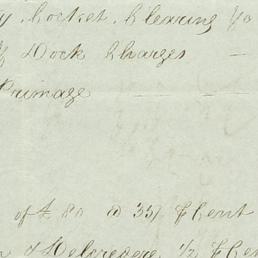 Cocket, Clearing
Dock Charges
Primage
of £ 80 @ 35/ ⅌ Cent
Delcredere ½ ⅌ Cen